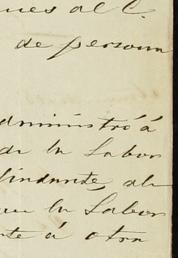 al C.
de persona
administró á
de la Labor
lindante, de
la Labor
á otra